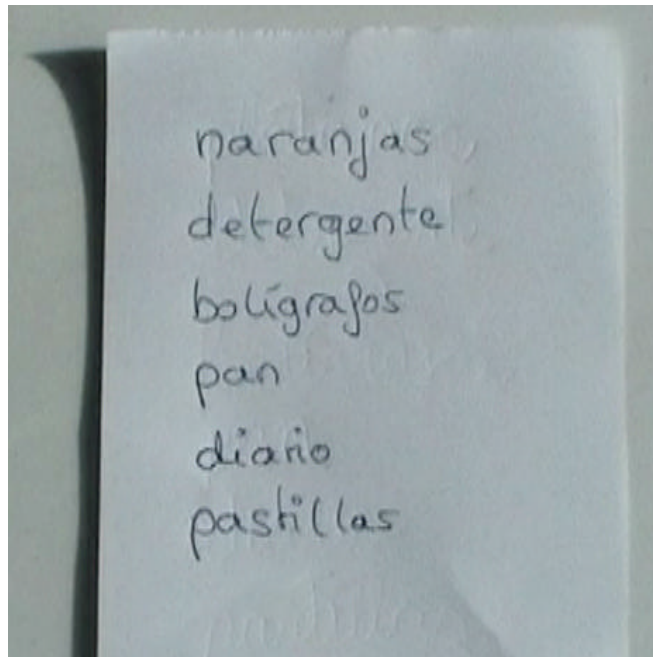 naranjas
detergente
bolígrafos
pan
diario
pastillas